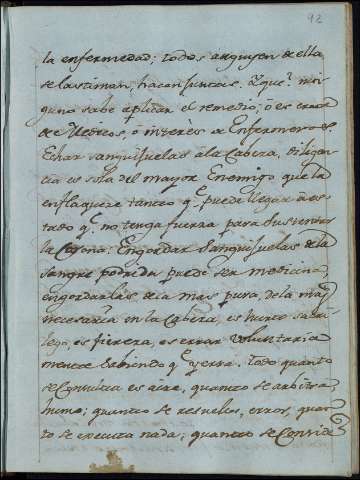 92
la enfermedad: todos arguyen de ella
se lastiman, hacen juntas. Y que? nin
guno sabe aplicar el remedio; ó es error
de Medicos, ó interes de Enfermeros.
Echar sanguijuelas á la Cabeza, diligen
cia es sola del mayor Enemigo que la
enflaquece tanto q.e puede llegar á es
tado q.e no tenga fuerza para sustentar
la Corona: Engordar Sanguijuelas de la
sangre podrida puede ser medicina,
engordarlas de la mas pura, de la mas
necesaria en la Cabeza, es hurto sacri
lego, es fiereza, es errar voluntaria
mente sabiendo q.e yerra. Todo quanto
se Consulta es aire, quanto se arbitra
humo, quanto se resuelve, error, quan
to se executa nada; quanto se Conside